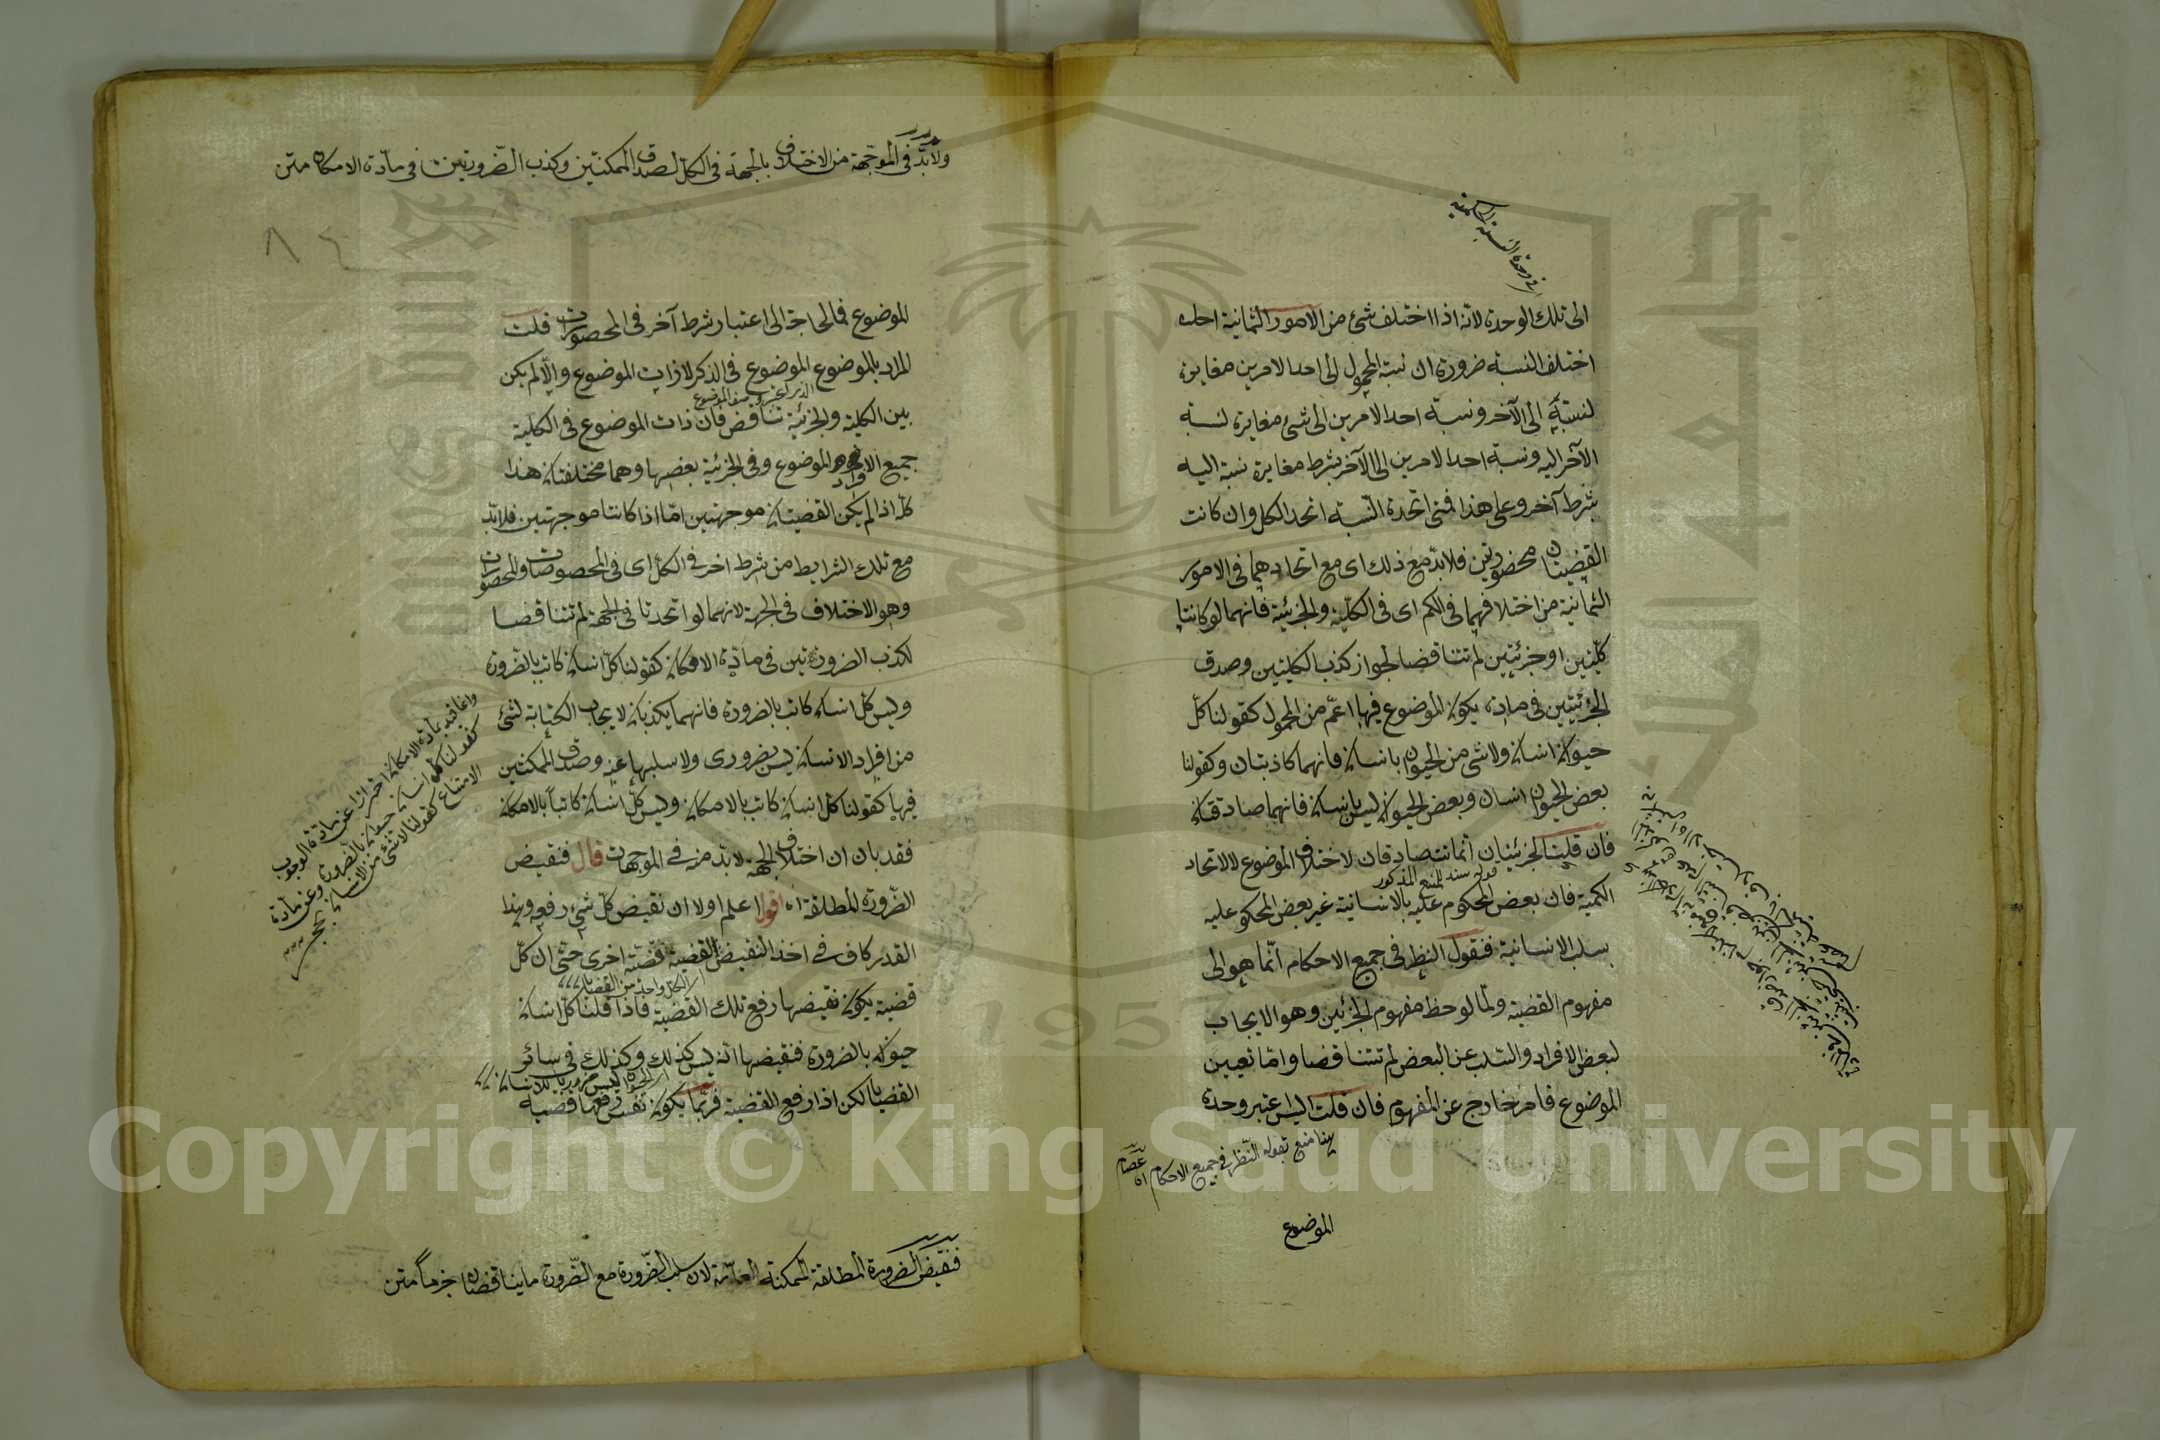 في وحدة النسبة الحكمية
الى تلك الوحدة لانه اذا اختلف شئ من الامور الثمانية
اختلف النسبة ضرورة ان نسبة المحمول الى احد الامرين مغايرة
لنسبته الى الآخر ونسبة احد الامرين الى شئ مغايرة لنسبة
الآخر اليه ونسبة احد الامرين الى الآخر بشرط مغايرة نسبة اليه
بشرط آخر وعلى هذا فمتى اتحدة النسبة اتحد الكل وان كانت
القضيتان محصورتين فلا بد مع ذلك اى مع اتحادهما فى الامور
الثمانية من اختلافهما فى الكم اى فى الكلية والجزئية فانهما لو كانتا
كليتين او جزئيتين لم تتناقضا لجواز كذب الكليتين وصدق
الجزئيتين فى مادة يكون الموضوع فيها اعم من المحمول كقولنا كل
حيوان انسان ولا شئ من الحيوان بانسان فانهما كاذبتان وكقولنا
بعض الحيوان انسان وبعض الحيوان ليس بانسان فانهما صادقتان
فان قلت الجزئيتان انما تتصادقان لاختلاف الموضوع لا لاتحاد
قوله سند للمنع المذكور
الكمية فان بعض المحكوم عليه بالانسانية غير بعض المحكوم عليه
بسلب الانسانية فنقول النظر فى جميع الاحكام انما هو الى
مفهوم القضية ولما لوحظ مفهوم الجزئيتين وهو الايجاب
لبعض الافراد والسلب عن البعض لم تتناقضا واما تعيين
الموضوع فامر خارج عن المفهوم فان قلت اليس اعتبر وحدة
هذا منع لقوله النظر فى جميع الاحكام اه عصام
الموضوع
ولا بد فى الموجهة من الاختلاف بالجهة فى الكل لصدق الممكنتين وكذب الضروريتين فى مادة الامكان متن
٨٤
الموضوع فما الحاجة الى اعتبار شرط آخر فى المحصورات قلت
المراد بالموضوع الموضوع فى الذكر لا ذات الموضوع والا لم يكن
بين الكلية والجزئية تناقض فان ذات الموضوع فى الكلية
جميع الافراد الموضوع وفى الجزئية بعضها وهما مختلفتان هذا
كله اذا لم يكن القضيتان موجهتين اما اذا كانتا موجهتين فلا بد
مع تلك الشرايط من شرط اخر فى الكل اى فى المخصوصات والمحصورات
وهو الاختلاف فى الجهة لانهما لو اتحدتا فى الجهة لم تتناقضا
لكذب الضرورتين فى مادة الامكان كقولنا كل انسان كاتب بالضرورة
وليس كل انسان كاتب بالضرورة فانهما يكذبان لا يجاب الكتابة لشئ
من افراد الانسان ليس بضرورى ولا سلبها عنه وصدق الممكنتين
فيها كقولنا كل انسان كاتب بالامكان وليس كل انسان كاتبا بالامكان
فقد بان ان اختلاف الجهة لا بد منه فى الموجهات قال فنقيض
الضرورة المطلقة اه اقول اعلم اولا ان نقيض كل شئ رفعه وهذا
القدر كاف فى اخذ النقيض القضية قضية اخرى حتى ان كل
اى لكل واحد من القضايا
قضية يكون نقيضها رفع تلك القضية فاذا قلنا كل انسان
حيوان بالضرورة فنقيضها انه ليس كذلك وكذلك فى سائر
القضايا لكن اذا رفع القضية فربما يكون نفس رفعها قضية
وانما قيد بمادة الامكان احترازا عن مادة الوجوب
كقولنا كل انسان حيوان بالضرورة وعن مادة
الامتناع كقولنا لا شئ من الانسان بحجر
فنقيض الضرورة المطلقة الممكنة العامة لان سلب الضرورة مع الضرورة مما يتناقضان جزما متن